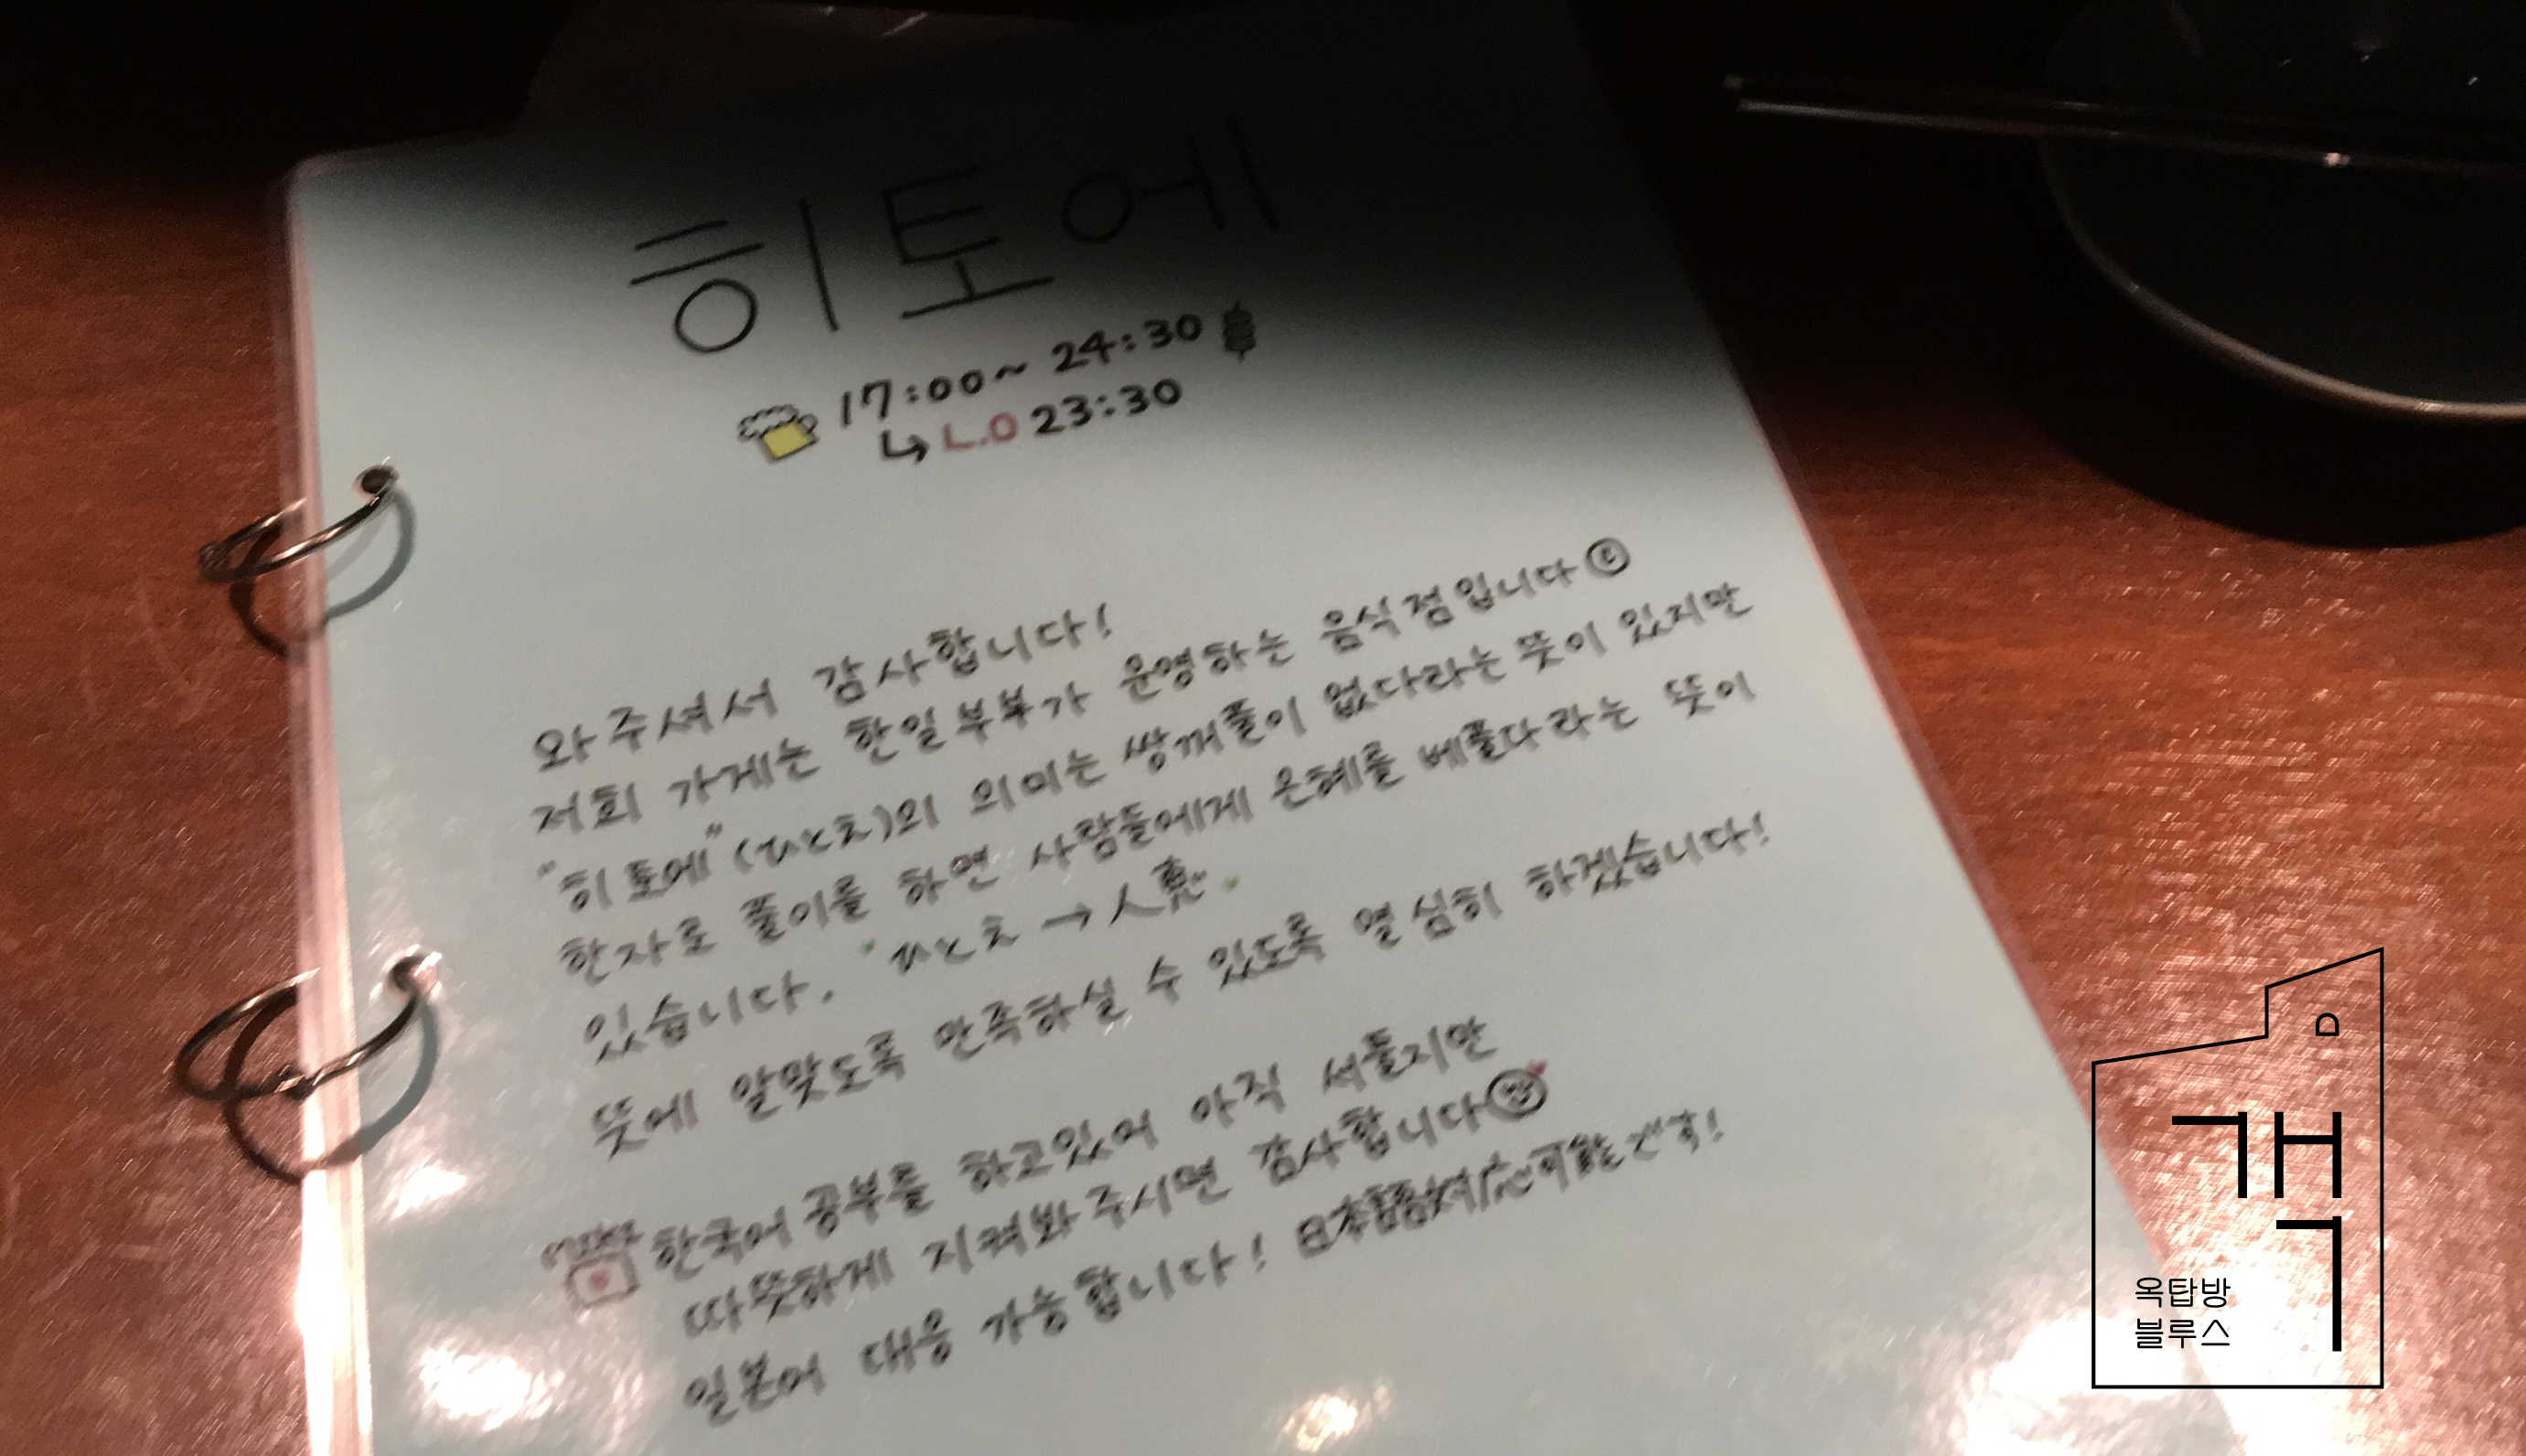 히토에
17:00~ 24:30
↳ L.O 23:30
와주셔서 감사합니다!
저희 가게는 한일부부가 운영하는 음식점입니다
"히토에"(ひとえ)의 의미는 쌍꺼풀이 없다라는 뜻이 있지만
한자로 풀이를 하면 사람들에게 은혜를 베풀다라는 뜻이
있습니다. ひとえ → 人恵
뜻에 알맞도록 만족하실 수 있도록 열심히 하겠습니다!
한국어 공부를 하고있어 아직 서툴지만
따뜻하게 지켜봐주시면 감사합니다
일본어 대응 가능합니다! 日本語対応可能です!
옥탑방
블루스